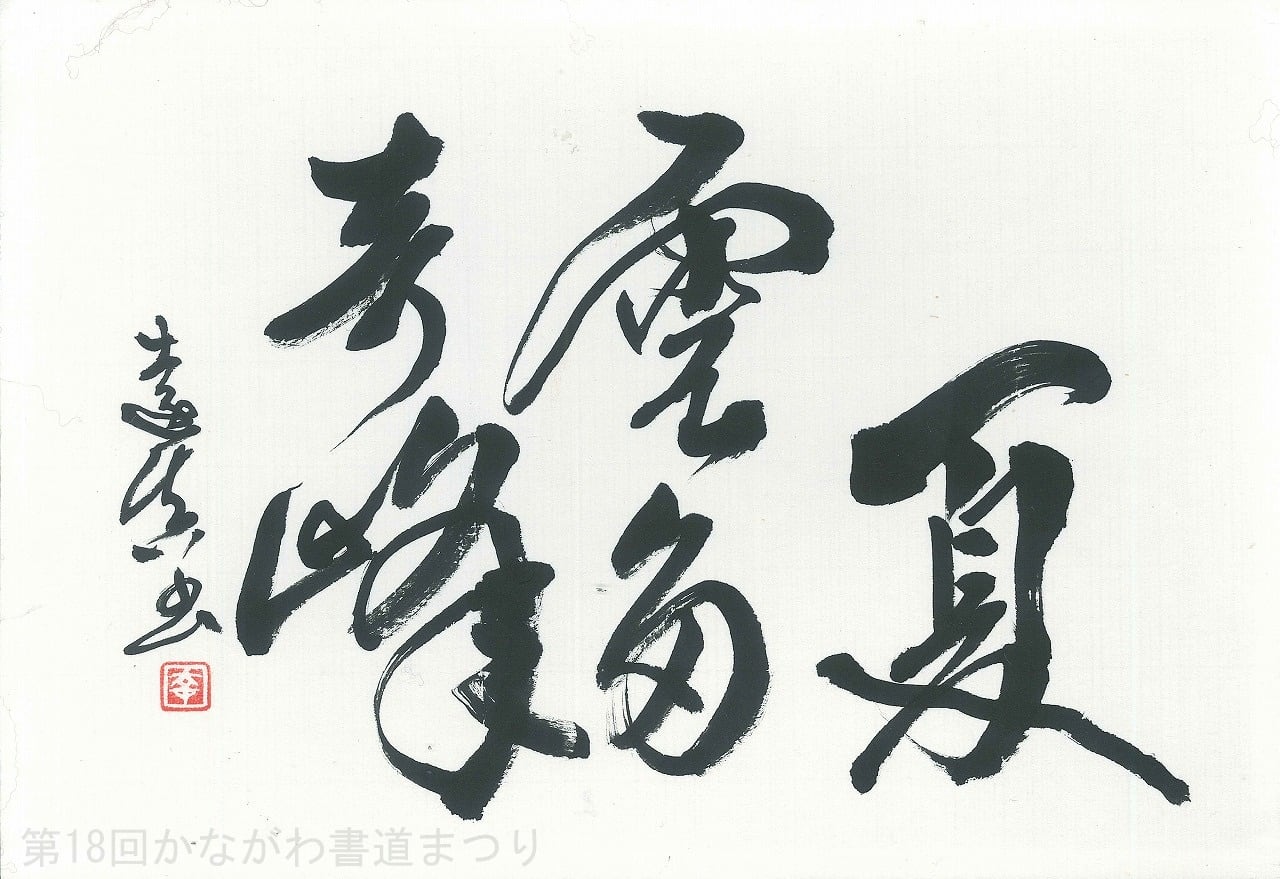 夏
雲多
奇峰
書
第18回かながわ書道まつり